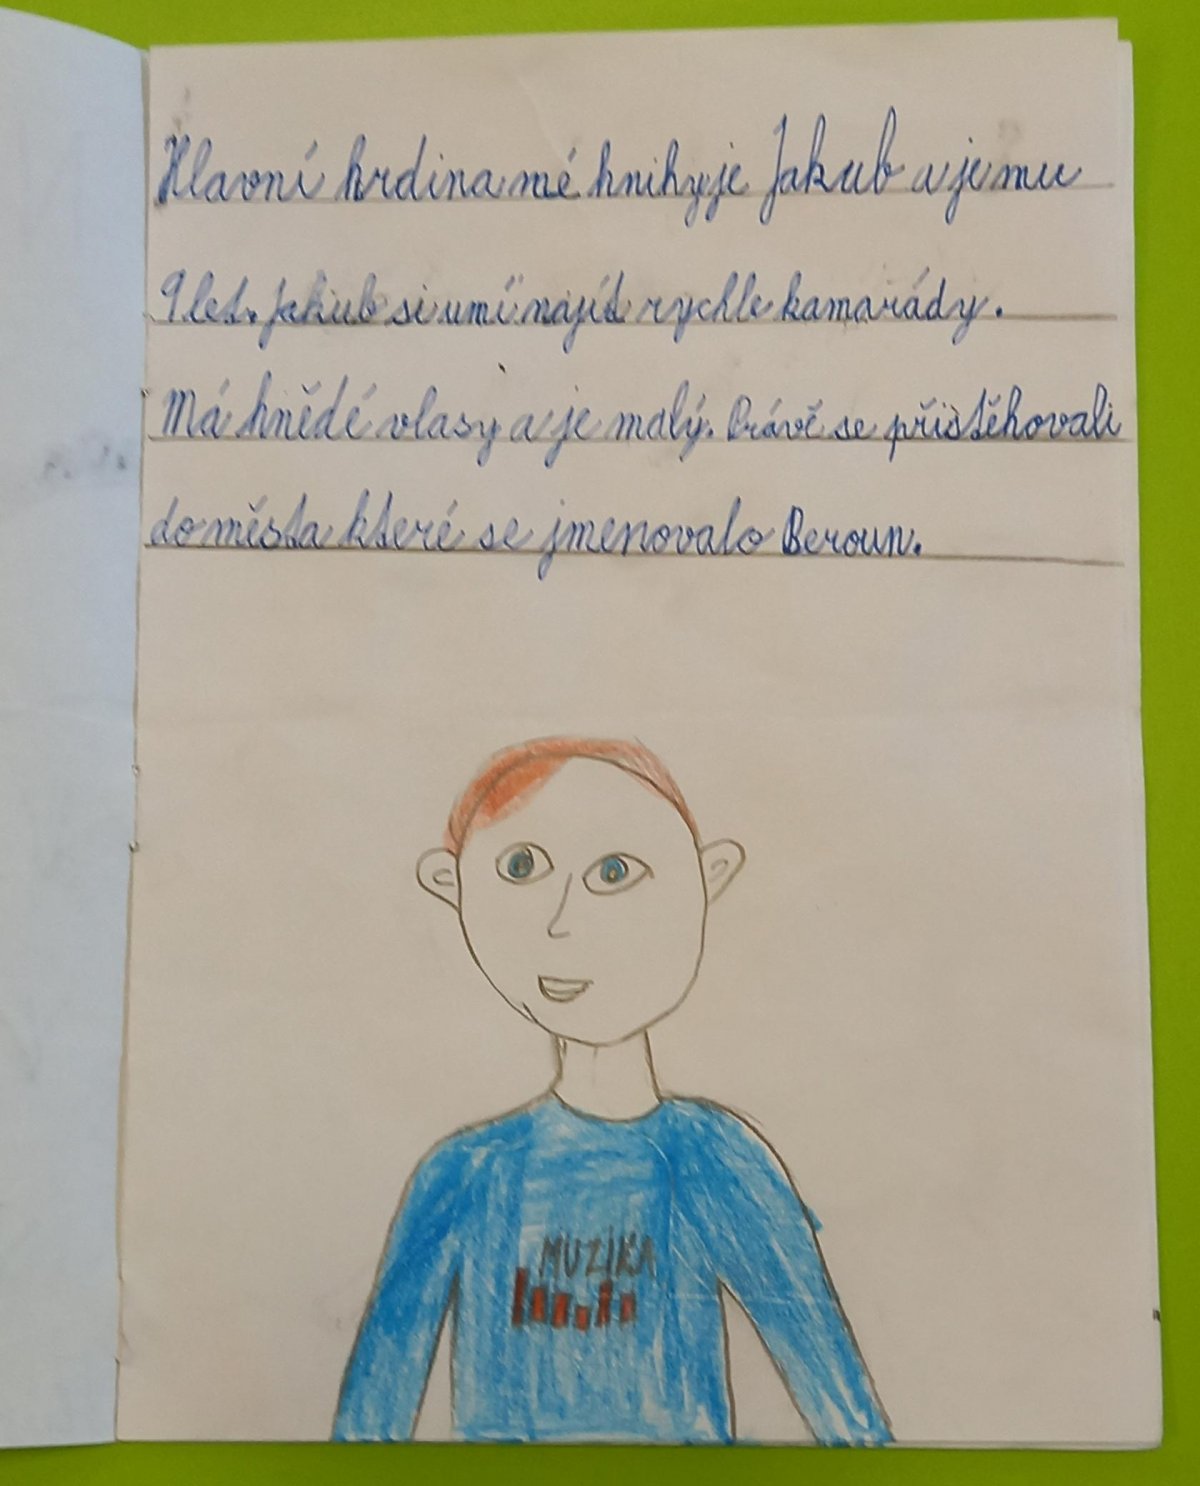 Hlavní hrdina mé knihy je Jakub a je mu
9 let. Jakub si umí najít rychle kamarády.
Má hnědé vlasy a je malý. Právě se přistěhovali
do města které se jmenovalo Beroun.
MUZIKA